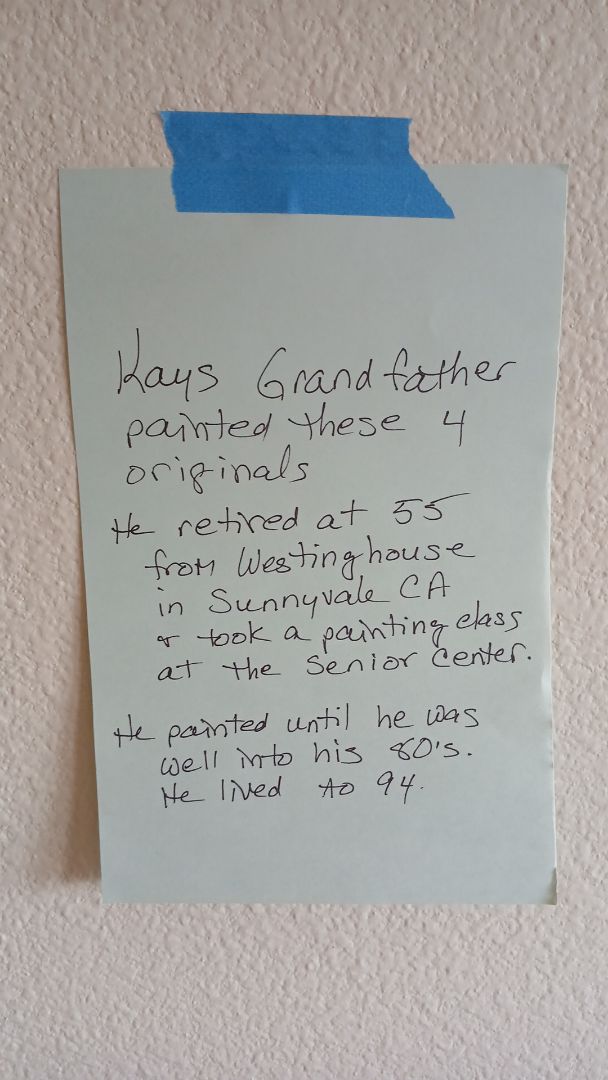 Kays Grandfather
painted these 4
originals
He retired at 55
from Westinghouse
in Sunnyvale CA
& took a painting class
at the Senior Center.
He painted until he was
well into his 80's.
He lived to 94.